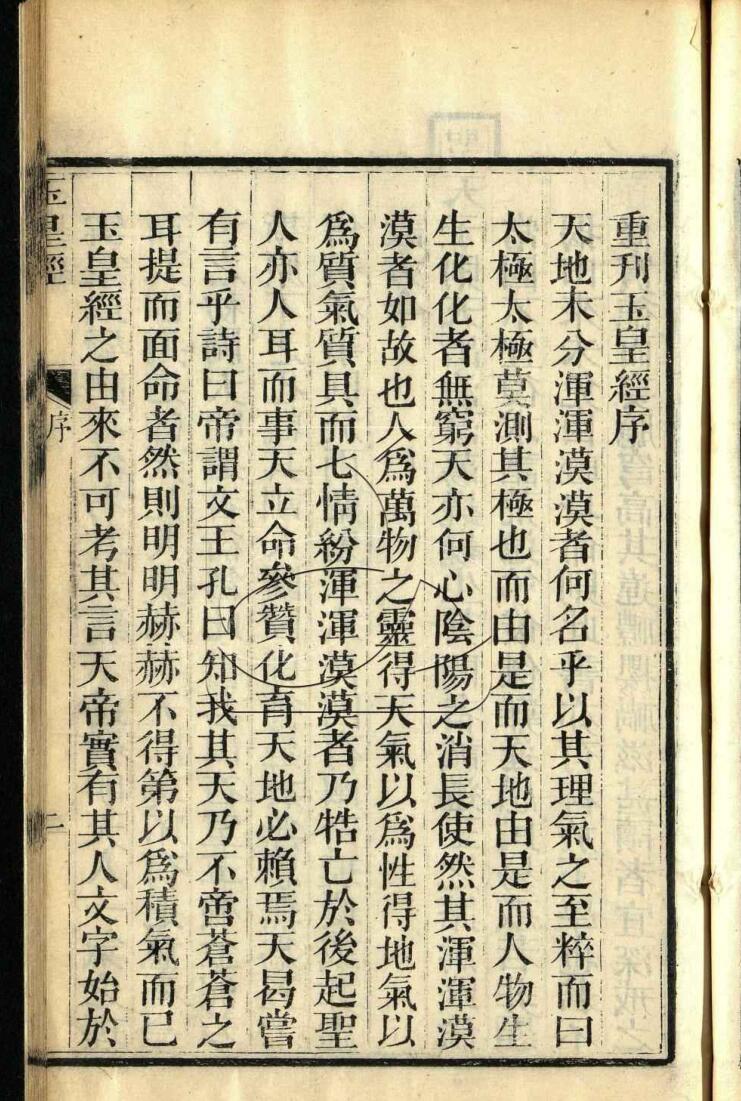 重刊玉皇經序
天地未分渾渾漠漠者何名乎以其理氣之至粹而曰
太極太極莫測其極也而由是而天地由是而人物生
生化化者無窮天亦何心陰陽之消長使然其渾渾漠
漠者如故也人爲萬物之靈得天氣以爲性得地氣以
爲質氣質具而七情紛渾渾漠漠者乃牿亡於後起聖
人亦人耳而事天立命參贊化育天地必賴焉天曷嘗
有言乎詩曰帝謂文王孔曰知我其天乃不啻蒼蒼之
耳提而面命者然則明明赫赫不得第以爲積氣而已
玉皇經之由來不可考其言天帝實有其人文字始於
玉皇經
序
二